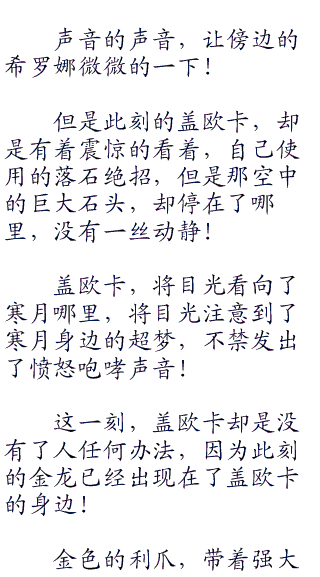 声音的声音，让傍边的
希罗娜微微的一下！
但是此刻的盖欧卡，却
是有着震惊的看着，自己使
用的落石绝招，但是那空中
的巨大石头，却停在了哪
里，没有一丝动静！
盖欧卡，将目光看向了
寒月哪里，将目光注意到了
寒月身边的超梦，不禁发出
了愤怒咆哮声音！
这一刻，盖欧卡却是没
有了人任何办法，因为此刻
的金龙已经出现在了盖欧卡
的身边！
金色的利爪，带着强大